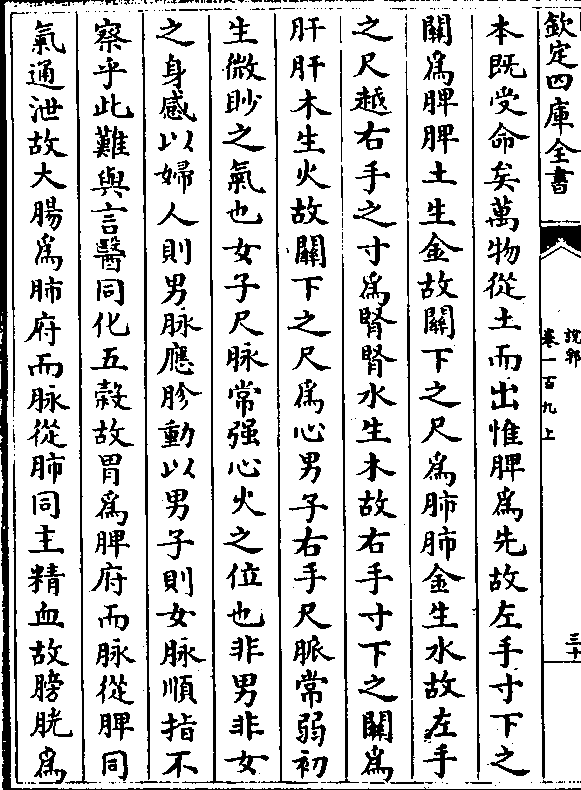 欽定四庫全書
說郛
卷一百九上
三十
本既受命矣萬物從土而出惟脾為先故左手寸下之
關為脾脾土生金故關下之尺為肺肺金生水故左手
之尺越右手之寸為腎腎水生木故右手寸下之關為
肝肝木生火故關下之尺為心男子右手尺脈常弱初
生微眇之氣也女子尺脉常强心火之位也非男非女
之身感以婦人則男脉應胗動以男子則女脉順指不
察乎此難與言醫同化五穀故胃為脾府而脉從脾同
氣通泄故大腸為肺府而脉從肺同主精血故膀胱為